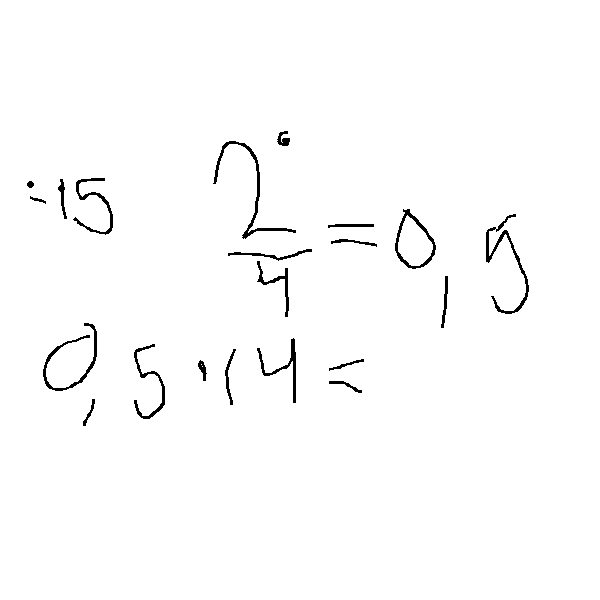 -15 2/4 = 0,5
0,5 · 14 =